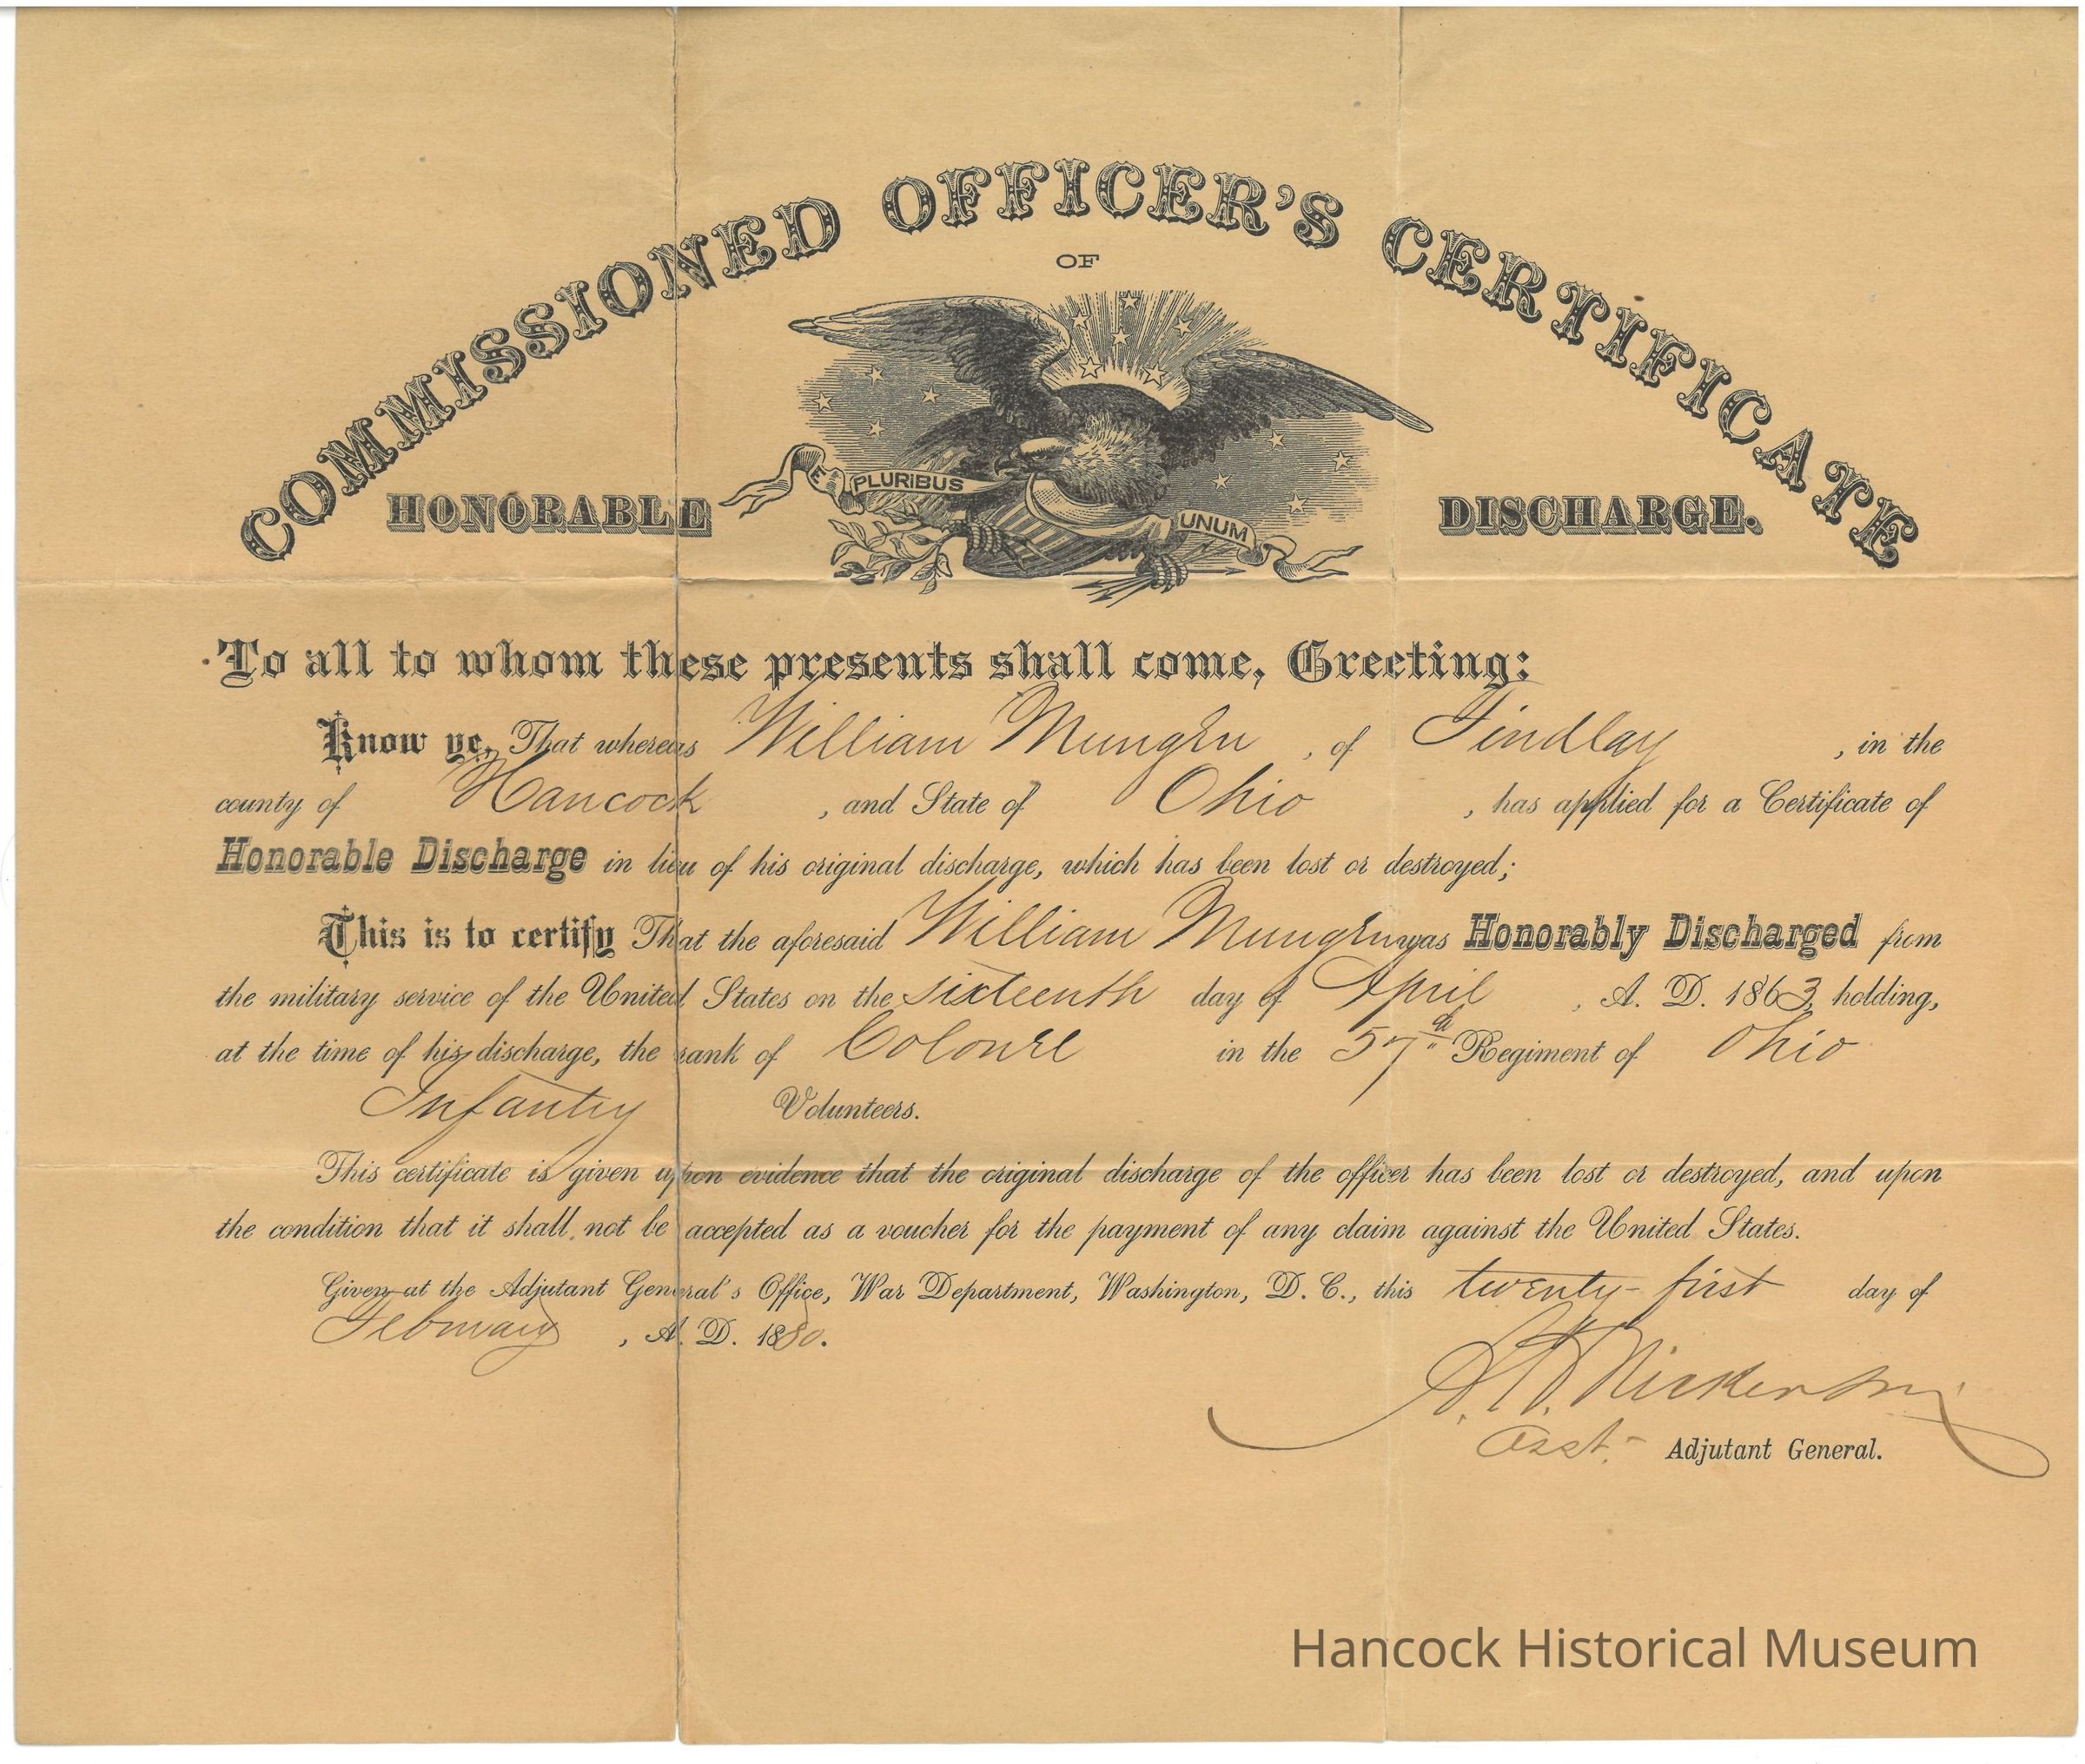 COMMISSIONED OFFICER'S CERTIFICATE
OF
E PLURIBUS UNUM
HONORABLE DISCHARGE.
To all to whom these presents shall come, Greeting:
Know ye, That whereas William Mungen, of Findlay, in the
county of Hancock, and State of Ohio, has applied for a Certificate of
Honorable Discharge in lieu of his original discharge, which has been lost or destroyed;
This is to certify That the aforesaid William Mungen was Honorably Discharged from
the military service of the United States on the sixteenth day of April, A. D. 1863, holding,
at the time of his discharge, the rank of Colonel in the 57th Regiment of Ohio
Infantry Volunteers.
This certificate is given upon evidence that the original discharge of the officer has been lost or destroyed, and upon
the condition that it shall not be accepted as a voucher for the payment of any claim against the United States.
Given at the Adjutant General's Office, War Department, Washington, D. C., this twenty-first day of
February, A. D. 1880.
Nickerson
Asst. Adjutant General.
Hancock Historical Museum